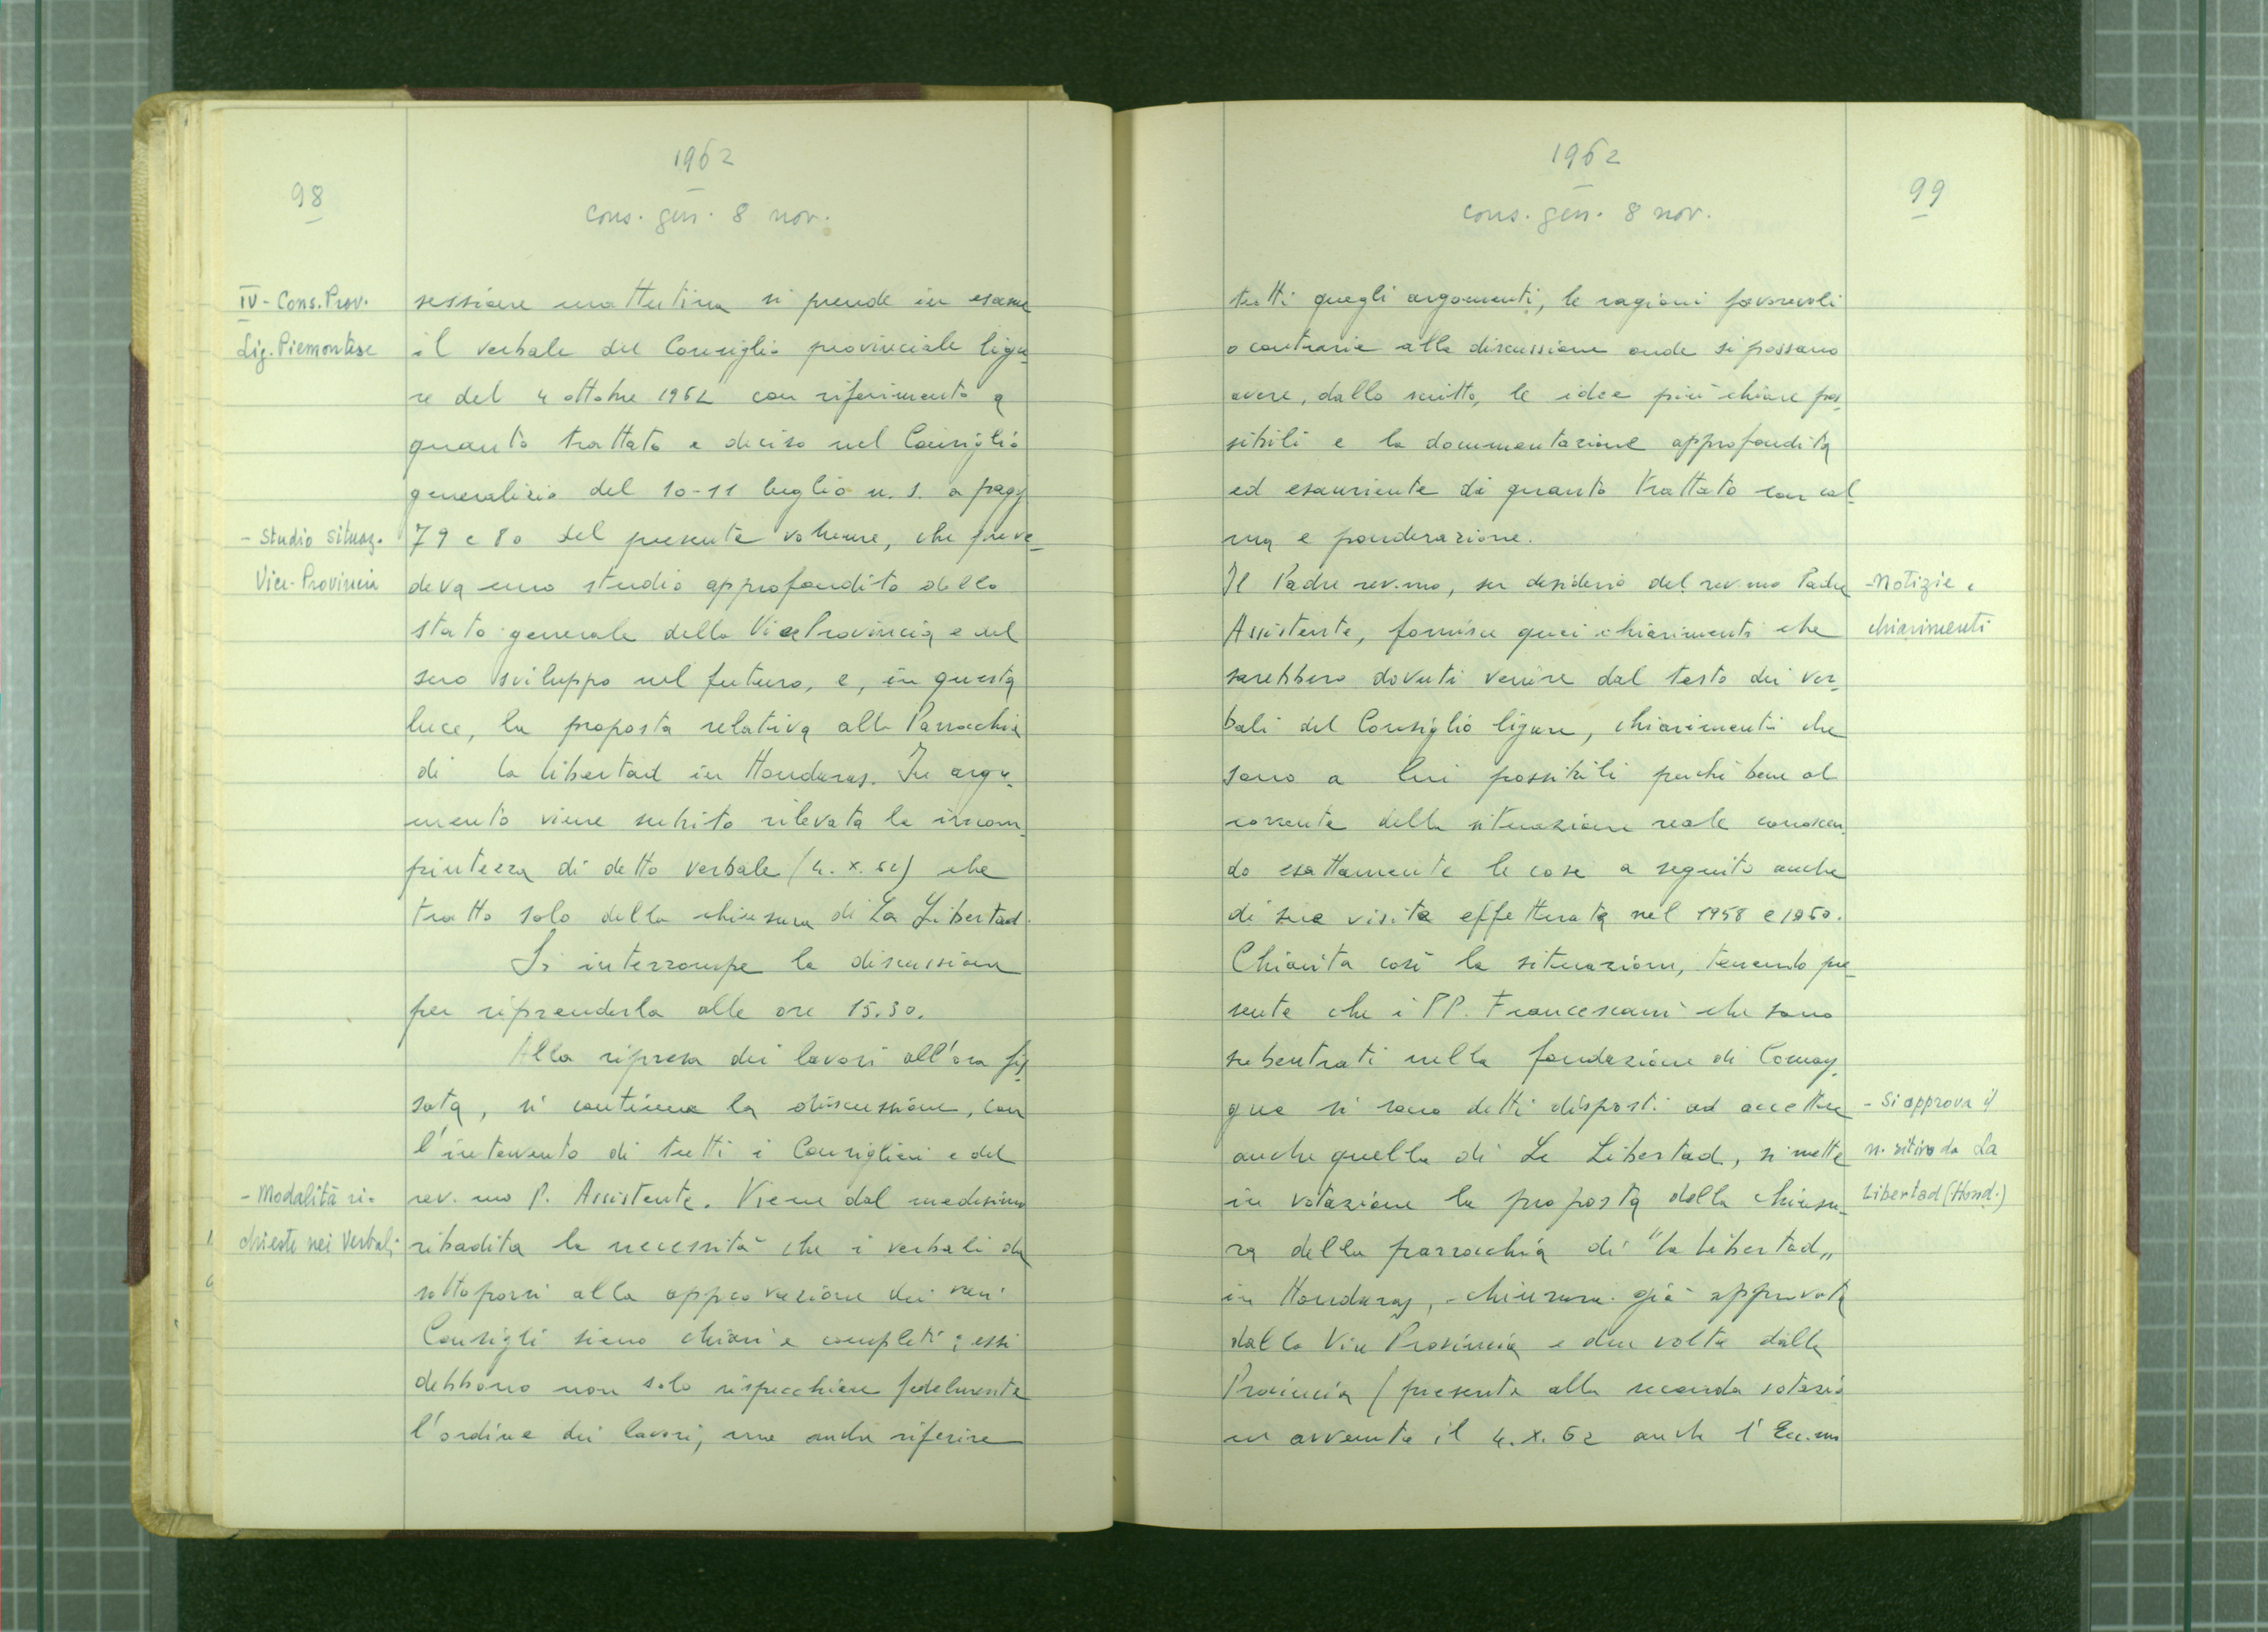 1962
98
cons. gen. 8 nov.
IV - Cons. Prov.
Lig. Piemontese
sessione mattutina si prende in esame
il verbale del Consiglio provinciale ligu-
re del 4 ottobre 1962 con riferimento a
quanto trattato e deciso nel Consiglio
generalizio del 10-11 luglio u. s. a pagg
- Studio situaz.
Vice-Provincia
79 e 80 del presente volume, che preve-
deva uno studio approfondito dello
stato generale della Vice Provincia e del
suo sviluppo nel futuro, e, in questa
luce, la proposta relativa alla Parrochia
di la libertad in Honduras. In argo-
mento viene subito rilevata la incom-
piutezza di detto verbale (4. X. 62) che
tratta solo della chiusura di La Libertad.
Si interrompe la discussione
per riprenderla alle ore 15.30.
Alla ripresa dei lavori all'ora fis-
sata, si continua la discussione, con
l'intervento di tutti i Consiglieri e del
- Modalità ri-
chieste nei verbali
rev. mo P. Assistente. Viene dal medesimo
ribadita la necessità che i verbali da
sottoporsi alla approvazione dei vari
Consigli siano chiari e completi; essi
debbono non solo rispecchiare fedelmente
l'ordine dei lavori, ma anche riferire
1962
99
cons. gen. 8 nov.
tutti quegli argomenti, le ragioni favorevoli
o contrarie alla discussione onde si possano
avere, dallo scritto, le idee più chiare pos-
sibili e la documentazione approfondita
ed esauriente di quanto trattato con cal-
ma e ponderazione.
Il Padre rev.mo, su desiderio del rev.mo Padre
Assistente, fornisce quei chiarimenti che
- Notizie e
chiarimenti
sarebbero dovuti venire dal testo dei ver-
bali del Consiglio ligure, chiarimenti che
sono a lui possibili perché bene al
corrente della situazione reale conoscen-
do esattamente le cose a seguito anche
di sua visita effettuata nel 1958 e 1960.
Chiarita così la situazione, tenendo pre-
sente che i PP. Francescani che sono
subentrati nella fondazione di Comay-
gua si sono detti disposti ad accettare
anche quella di La Libertad, si mette
in votazione la proposta della chiusu-
- Si approva il
n. ritiro da La
Libertad (Hond.)
ra della parrochia di "la Libertad"
in Honduras, chiusura già approvata
dalla Vice Provincia e due volte dalla
Provincia (presente alla seconda votazio
ne avvenuta il 4. X. 62 anche l'Ecc.mo